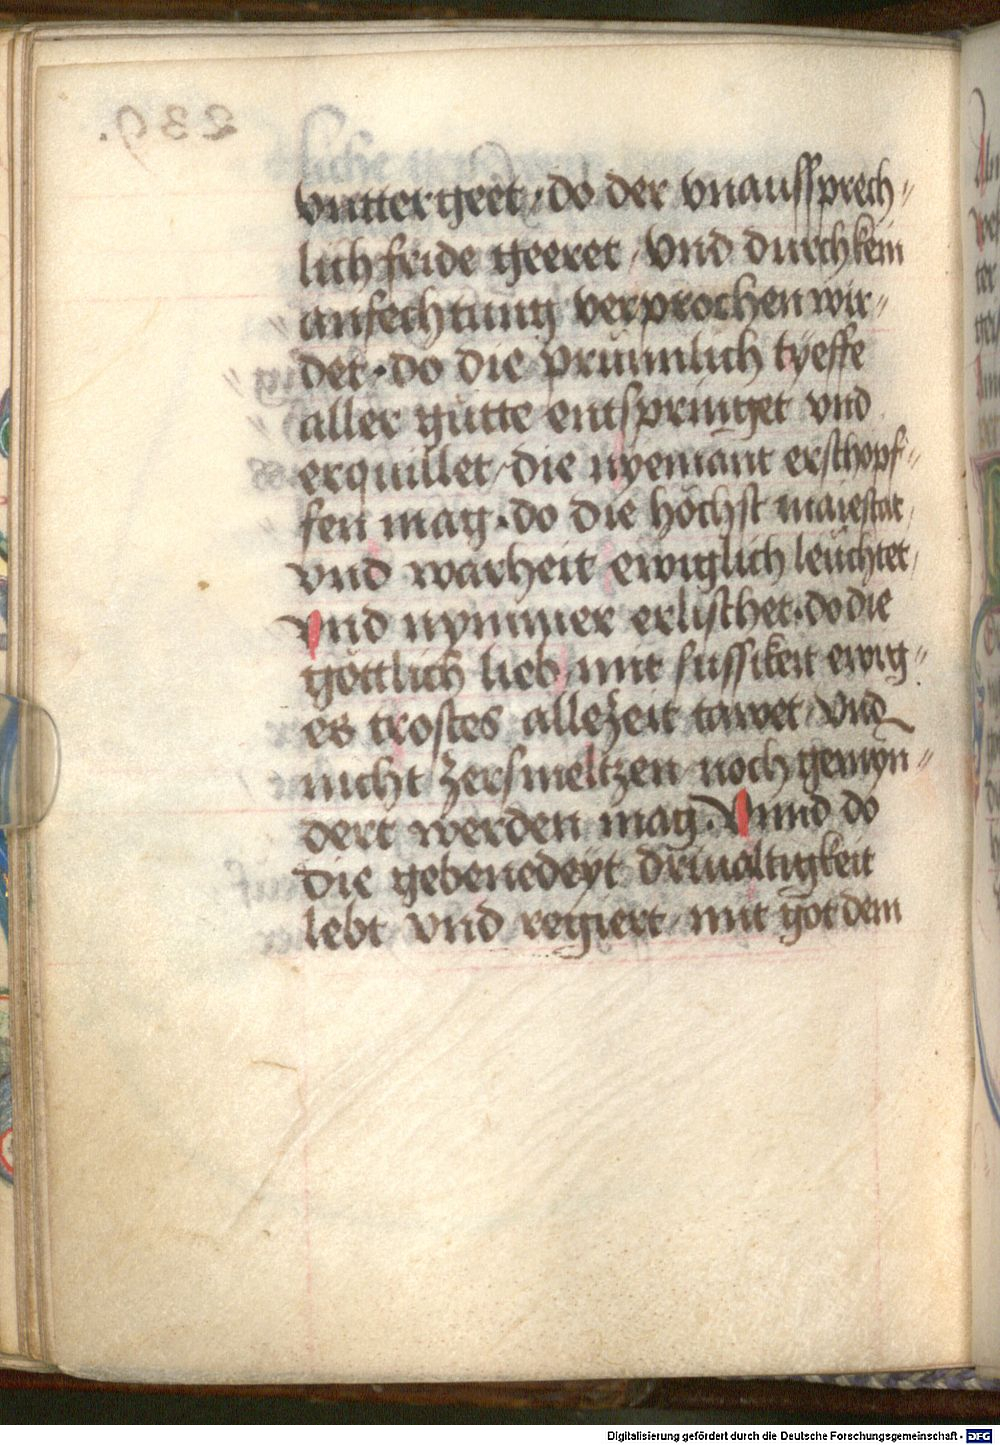 vntter geet / do der vnaussprech〃
lich fride geeret / vnd durch kein
anfechtung verprochen wir〃
det · do die prünnlich tyeffe
aller gütte entspringet vnd
erquillet / die nyemant erschopf〃
fen mag · do die höchst maiestat /
vnd warheit ewiglich leüchtet /
vnd nymmer erlischet · do die
göttlich lieb mit sussikeit ewig〃
es trostes allezeit tawet / vnd
nicht zersmeltzen noch gemyn〃
dert werden mag · Vnnd do
die gebenedeyt driualtigkeit
lebt vnd regiert / mit got dem
Digitalisierung gefördert durch die Deutsche Forschungsgemeinschaft - DFG